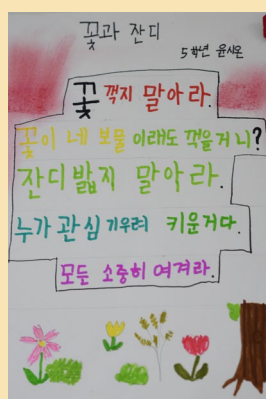 꽃과 잔디
5학년 윤시온
꽃 꺾지 말아라.
꽃이 네 보물 이래도 꺾을거니?
잔디밟지 말아라.
누가 관심 기우려 키운거다.
모든 소중히 여겨라.